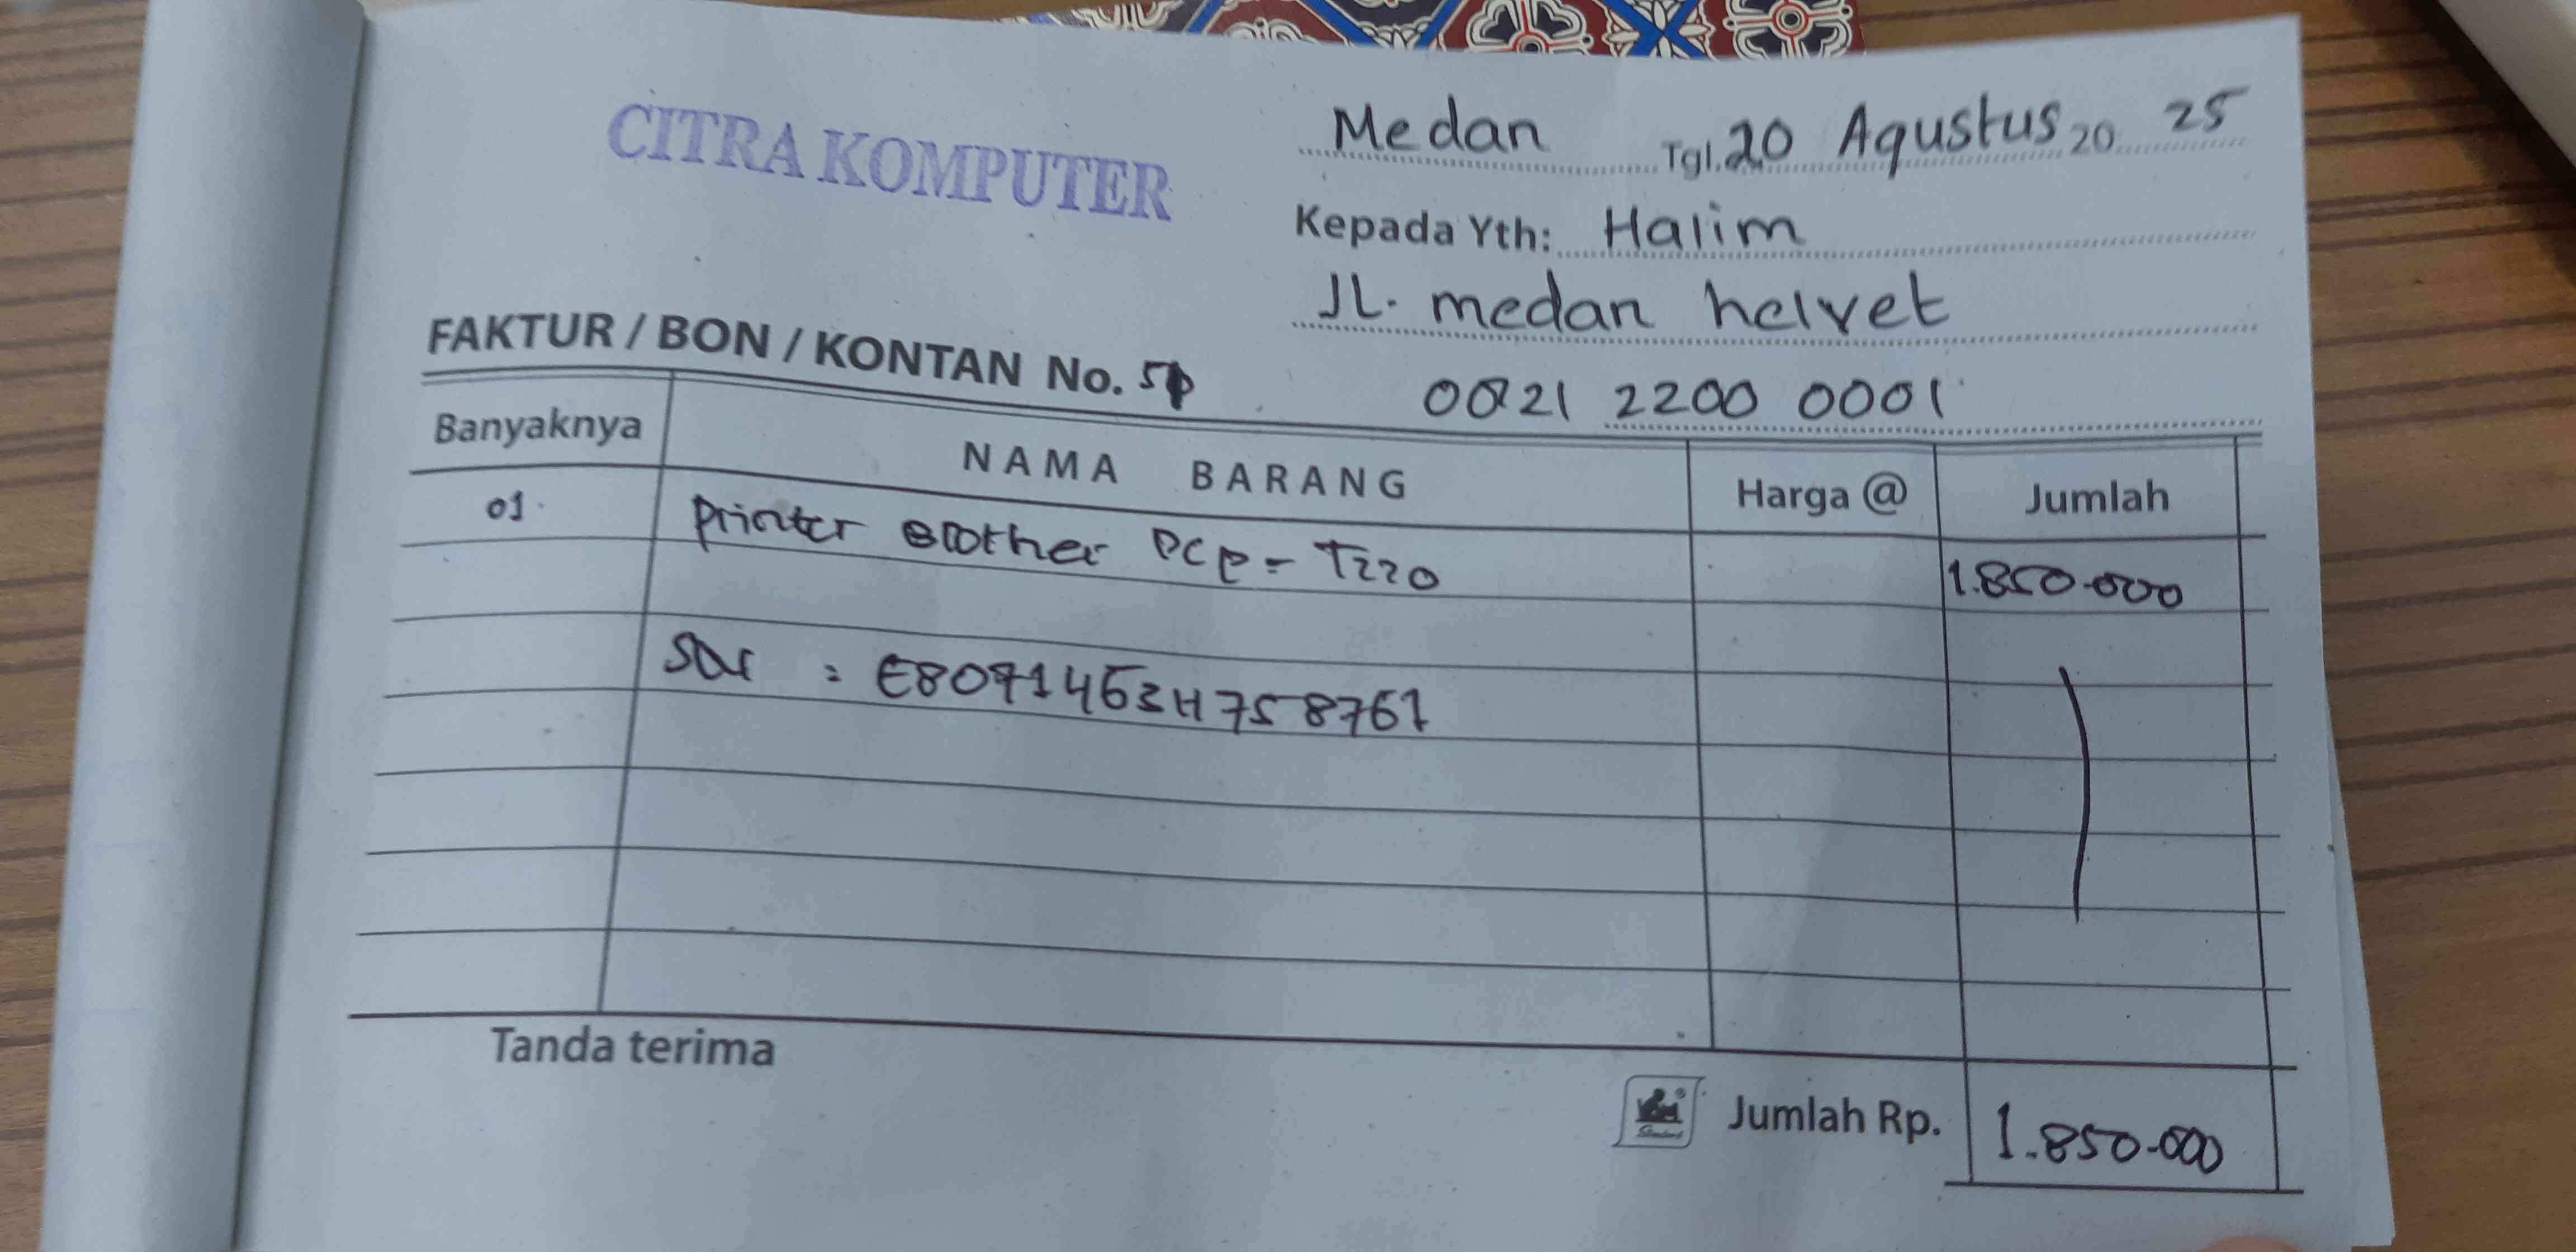 CITRA KOMPUTER
Medan Tgl. 20 Agustus 20 25
Kepada Yth: Halim
JL. medan helvet
FAKTUR / BON / KONTAN No.
0021 2200 0001
Banyaknya NAMA BARANG Harga @ Jumlah
01. Printer Brother DCP - T220 1.850.000
: E80714631H758761
Tanda terima
Jumlah Rp. 1.850.000